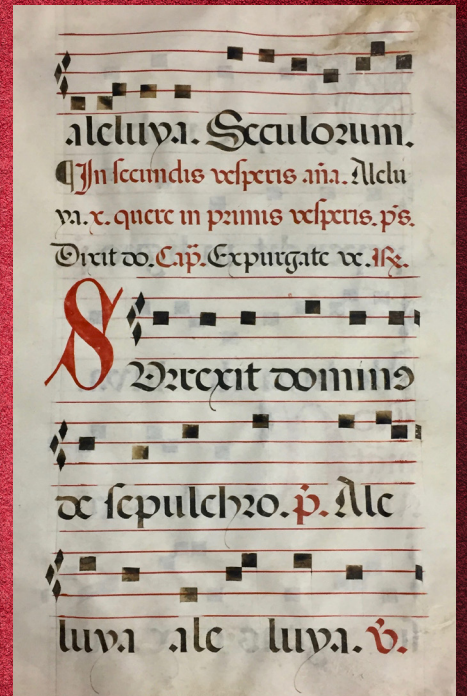 aleluya. Seculorum.
¶ In secundis vesperis aña. Alelu
ya. x. quere in primis vesperis. p̃s.
Dixit do. Cap̃. Expurgate ve. ℟.
Surrexit dominꝰ
de sepulchro. p̃. Ale
luya ale luya. ṽ.